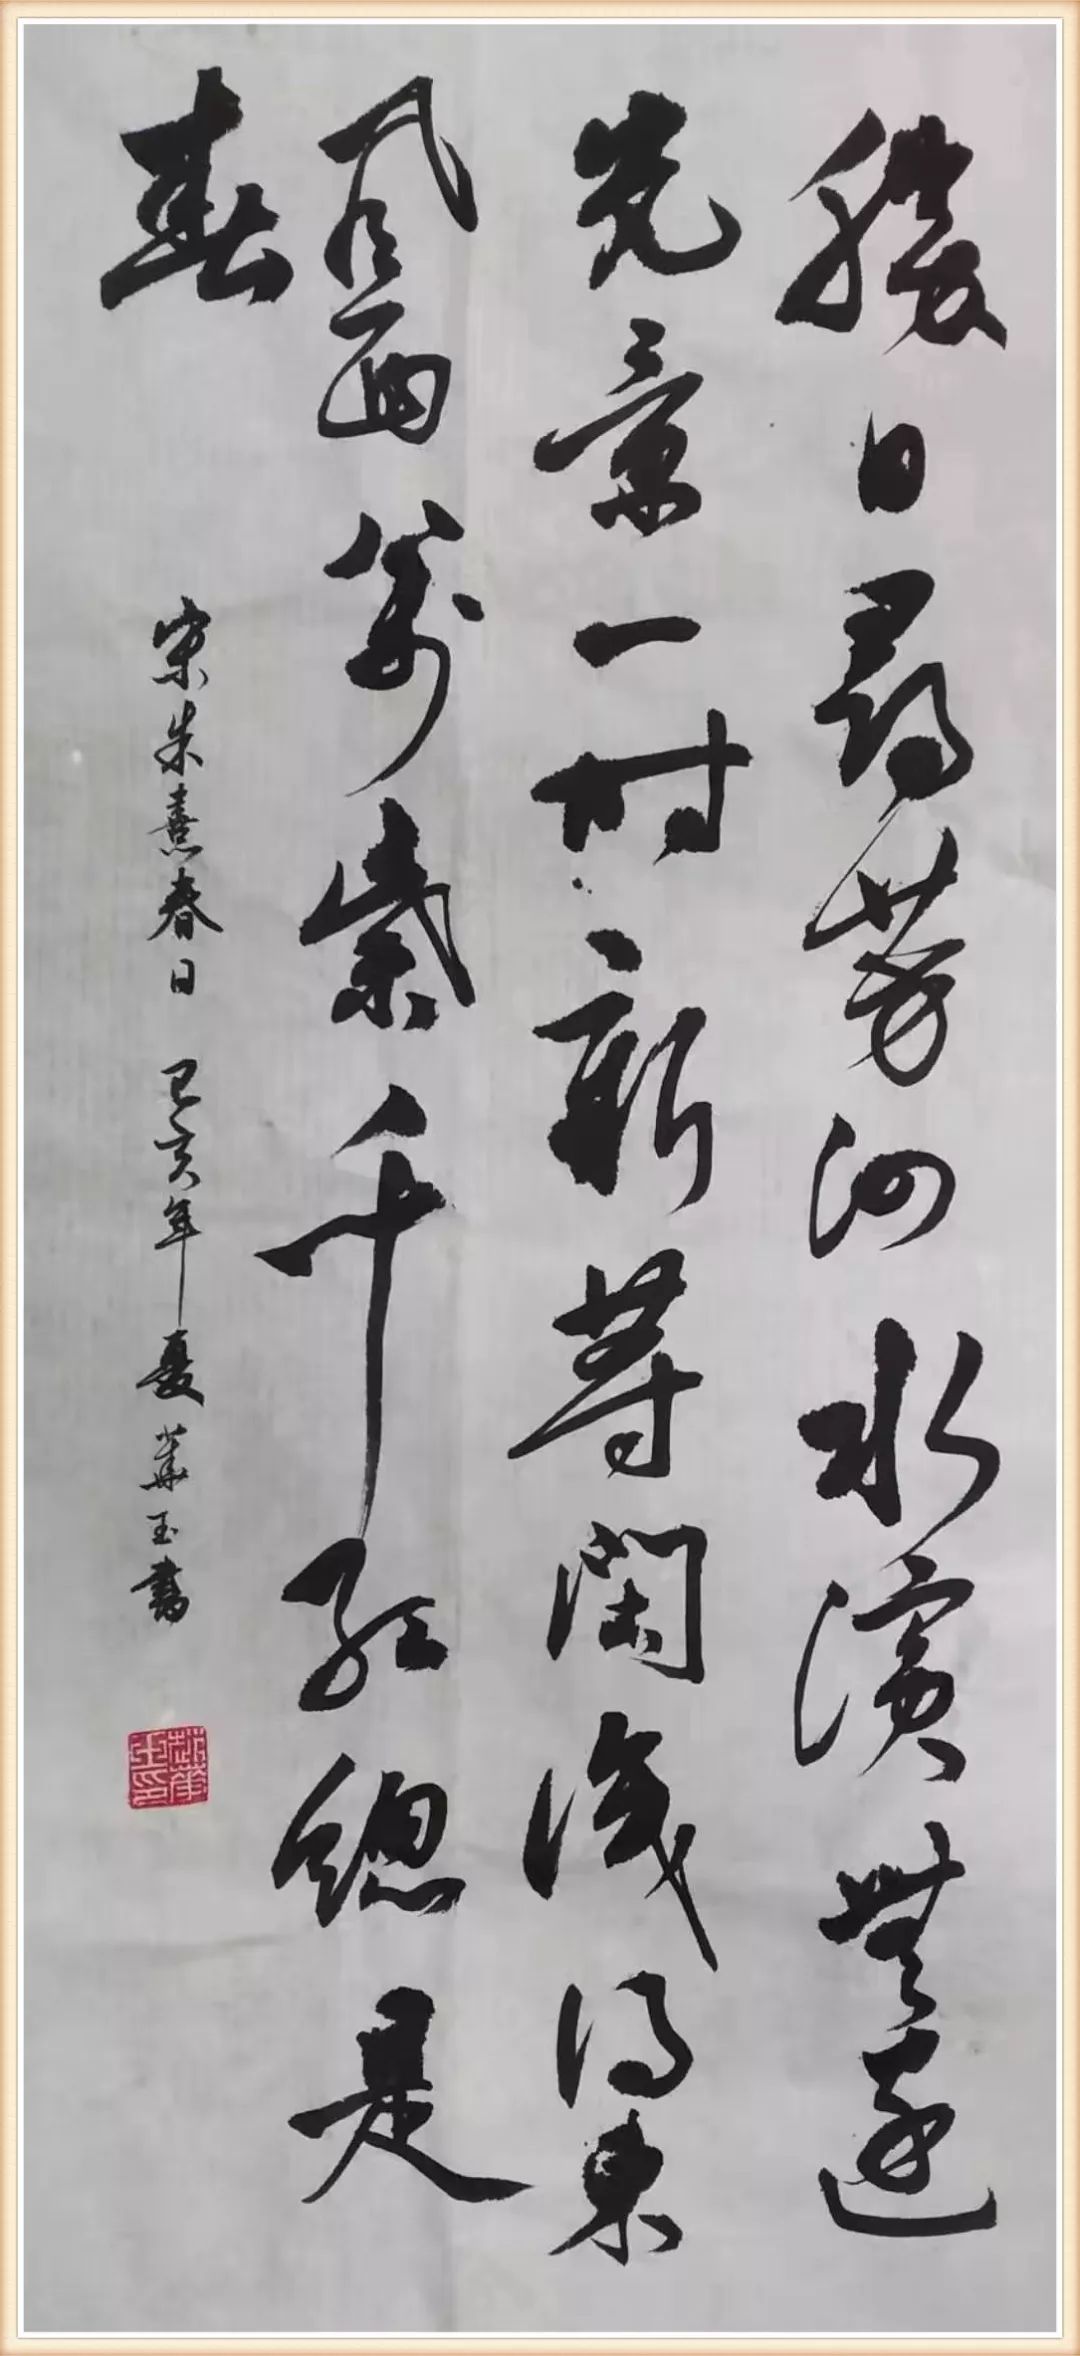 勝日尋芳泗水濱無邊
光景一時新等閑識得東
風面萬紫千紅總是
春
宋朱熹春日 己亥年夏 華玉書
趙華玉印